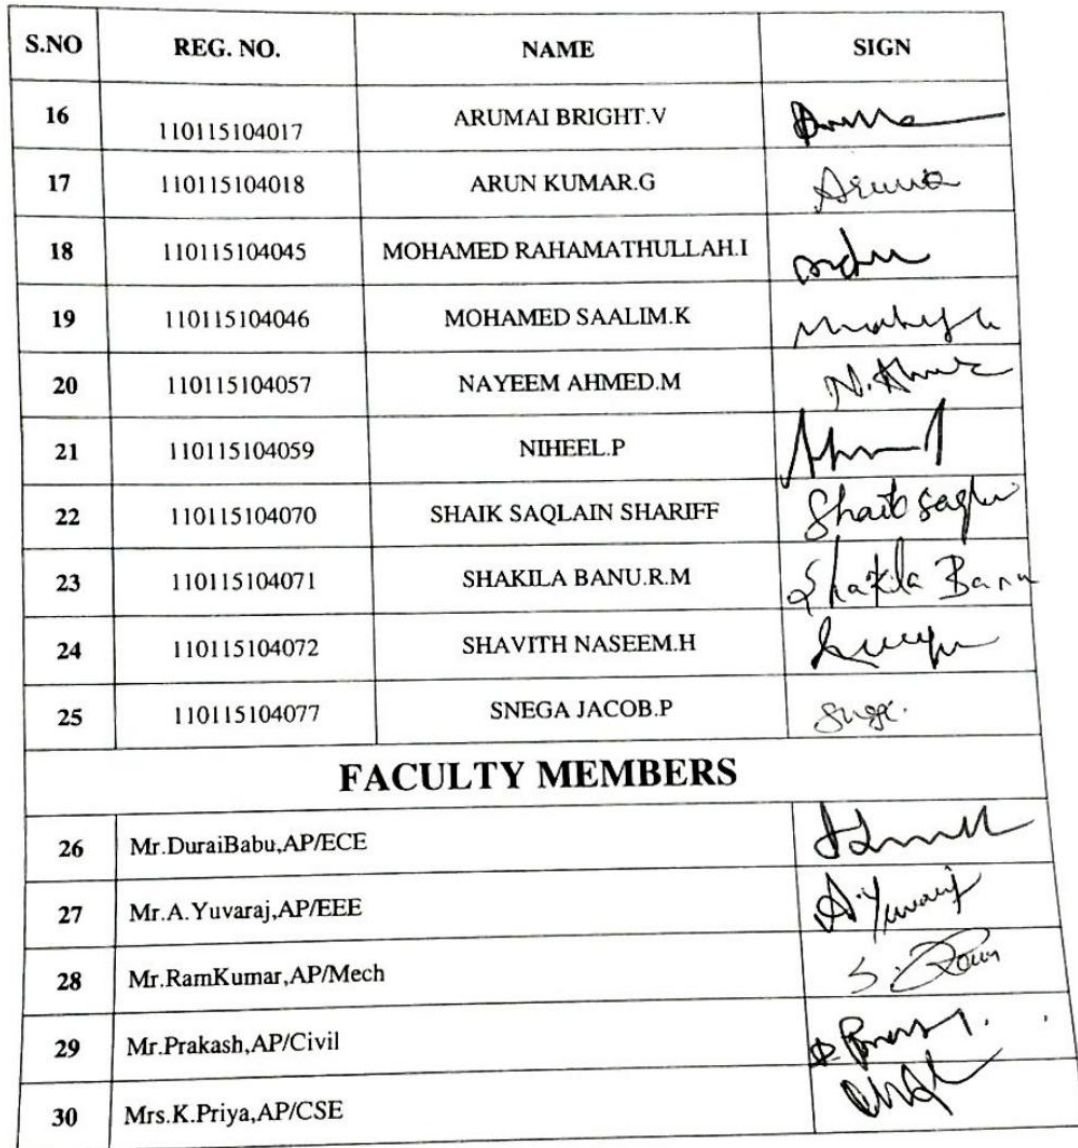 S.NO REG. NO. NAME SIGN
16 110115104017 ARUMAI BRIGHT.V
17 110115104018 ARUN KUMAR.G
18 110115104045 MOHAMED RAHAMATHULLAH.I
19 110115104046 MOHAMED SAALIM.K
20 110115104057 NAYEEM AHMED.M
21 110115104059 NIHEEL.P
22 110115104070 SHAIK SAQLAIN SHARIFF
23 110115104071 SHAKILA BANU.R.M Shakila Banu
24 110115104072 SHAVITH NASEEM.H
25 110115104077 SNEGA JACOB.P
FACULTY MEMBERS
26 Mr.DuraiBabu,AP/ECE
27 Mr.A.Yuvaraj,AP/EEE A.Yuvaraj
28 Mr.RamKumar,AP/Mech
29 Mr.Prakash,AP/Civil
30 Mrs.K.Priya,AP/CSE